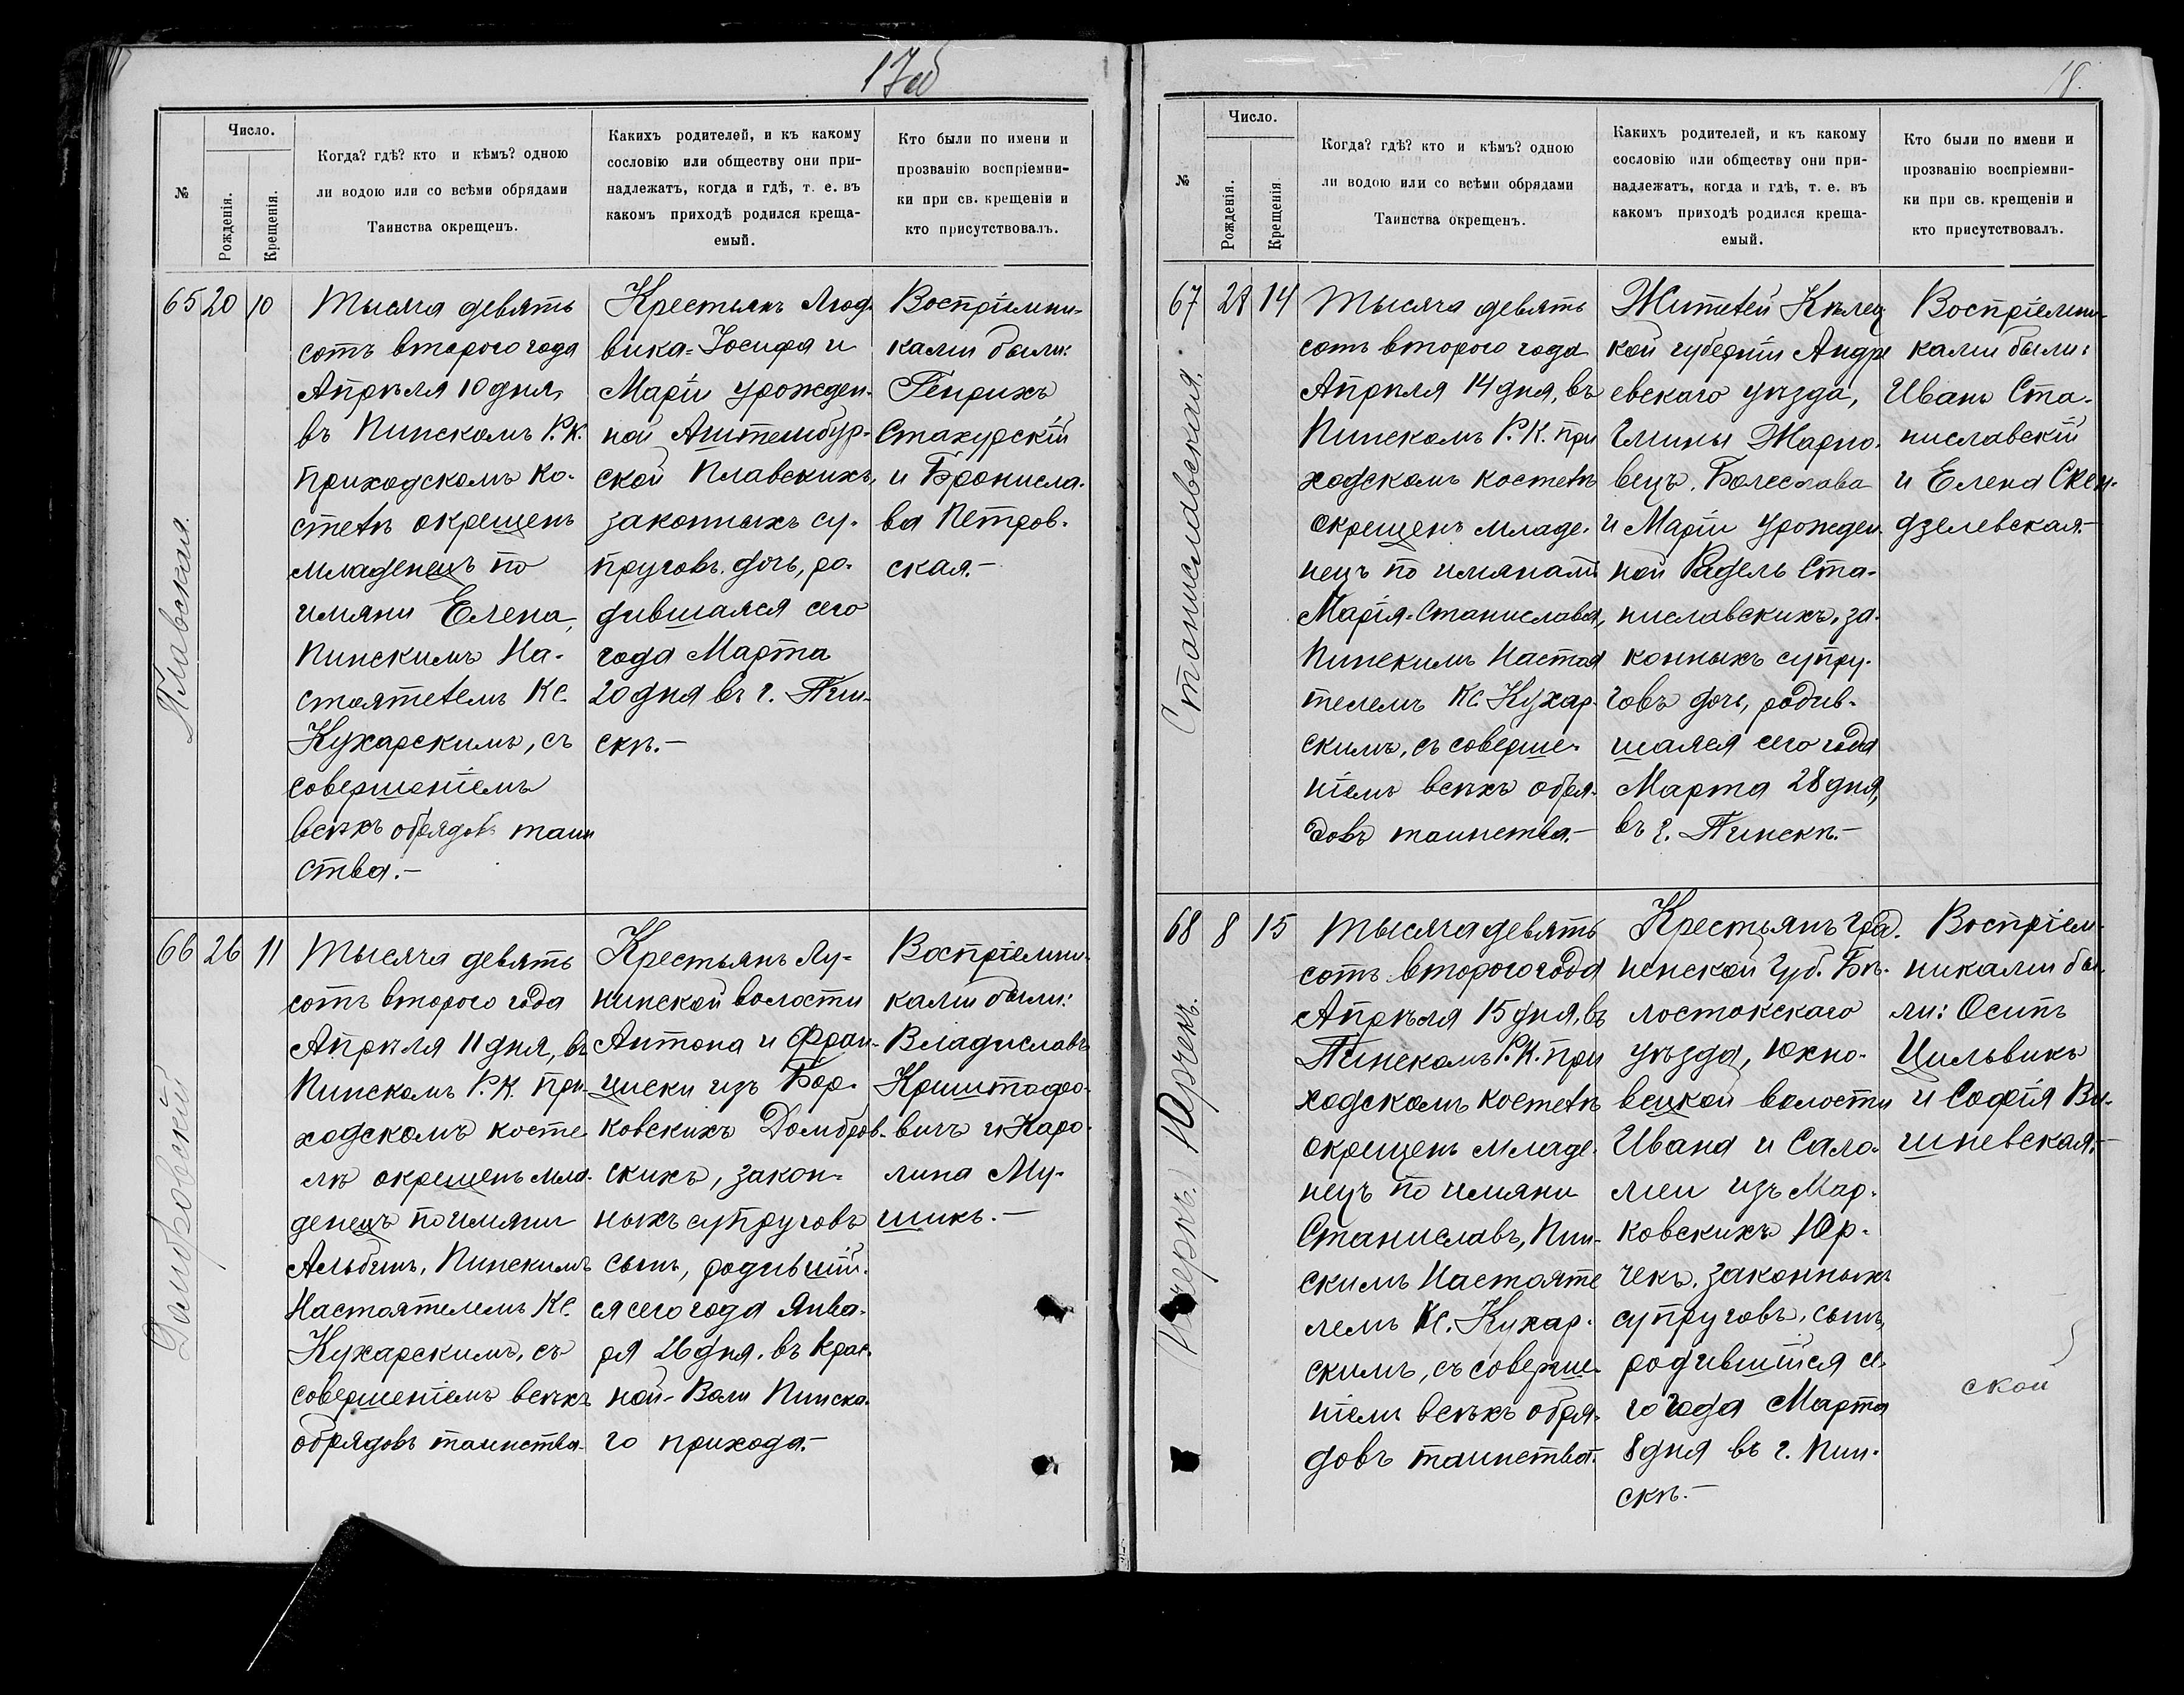 17об
№
Число.
Рожденія.
Крещенія.
Когда? гдѣ? кто и кѣмъ? одною
ли водою или со всѣми обрядами
Таинства окрещенъ.
Какихъ родителей, и къ какому
сословію или обществу они при-
надлежатъ, когда и гдѣ, т. е. въ
какомъ приходѣ родился креща-
емый.
Кто были по имени и
прозванію воспріемни-
ки при св. крещеніи и
кто присутствовалъ.
Плавская.
65 20 10
Тысяча девять
сотъ второго года
Апрѣля 10 дня,
въ Пинскомъ Р.К.
приходскомъ ко-
стелѣ окрещенъ
младенецъ по
имяни Елена,
Пинскимъ На-
стоятелемъ Кс.
Кухарскимъ, съ
совершеніемъ
всѣхъ обрядовъ таин
ства.-
Крестьянъ Люд-
вика-Іосифа и
Маріи урожден-
ной Аштембур-
ской Плавскихъ,
законныхъ су-
пруговъ дочь, ро-
дившаяся сего
года Марта
20 дня въ г. Пин-
скѣ.-
Воспріемни-
ками были:
Генрихъ
Стахурскій
и Бронисла-
ва Петров-
ская.-
Домбровскій
66 26 11
Тысяча девять
сотъ второго года
Апрѣля 11 дня, въ
Пинскомъ Р.К. при-
ходскомъ косте-
лѣ окрещенъ мла-
денецъ по имяни
Альбинъ, Пинскимъ
Настоятелемъ Кс.
Кухарскимъ, съ
совершеніемъ всѣхъ
обрядовъ таинства-
Крестьянъ Лу-
нинской волости
Антона и Фран-
циски изъ Бор-
ковскихъ Домбров-
скихъ, закон-
ныхъ супруговъ
сынъ, родивший-
ся сего года Янва-
ря 26 дня, въ Крас-
ной-Воли Пинска-
го прихода.-
Воспріемни-
ками были:
Владиславъ
Криштофо-
вичъ и Каро-
лина Му-
шикъ.-
18.
№
Число.
Рожденія.
Крещенія
Когда? гдѣ? кто и кѣмъ? одною
ли водою или со всѣми обрядами
Таинства окрещенъ.
Какихъ родителей, и къ какому
сословію или обществу они при-
надлежатъ, когда и гдѣ, т. е. въ
какомъ приходѣ родился креща-
емый.
Кто были по имени и
прозванію воспріемни-
ки при св. крещеніи и
кто присутствовалъ.
Станиславская.
67 28 14
Тысяча девять
сотъ второго года
Апрѣля 14 дня, въ
Пинскомъ Р.К. при
ходскомъ костелѣ
окрещенъ младе-
нецъ по имянамъ
Марія-Станиславъа,
Пинскимъ Настоя
телемъ Кс. Кухар-
скимъ, съ соверше-
ніемъ всѣхъ обря-
довъ таинства.-
Жителей Кѣлец
кой губерніи Андре
евскаго уѣзда,
Гмины Жарно-
вецъ. Болеслава
и Маріи урожден-
ной Радель Ста-
ниславскихъ, за-
конныхъ супру-
говъ дочь, родив-
шаяся сего года
Марта 28 дня,
въ г. Пинскѣ.-
Воспріемни-
ками были:
Иванъ Ста-
ниславскій
и Елена Скен-
дзелевская.-
Юрчекъ.
68 8 15
Тысяча девять
сотъ второго года
Апрѣля 15 дня, въ
Пинскомъ Р.К. при
ходскомъ костелѣ
окрещенъ младе-
нецъ по имяни
Станиславъ, Пин-
скимъ Настояте
лемъ Кс. Кухар-
скимъ, съ соверше-
ніемъ всѣхъ обря-
довъ таинства.
Крестьянъ Грод.
ненской Губ. Бѣ-
лостокскаго
уѣзда, Юхно-
вецкой волости
Ивана и Сало-
меи изъ Мар-
ковскихъ Юр-
чекъ, законныхъ
супруговъ, сынъ,
родившійся се-
го года Марта
8 дня въ г. Пин-
скѣ.-
Воспріем-
никами бы-
ли: Осипъ
Цильвикъ
и Софія Ви-
шневская.-
ской